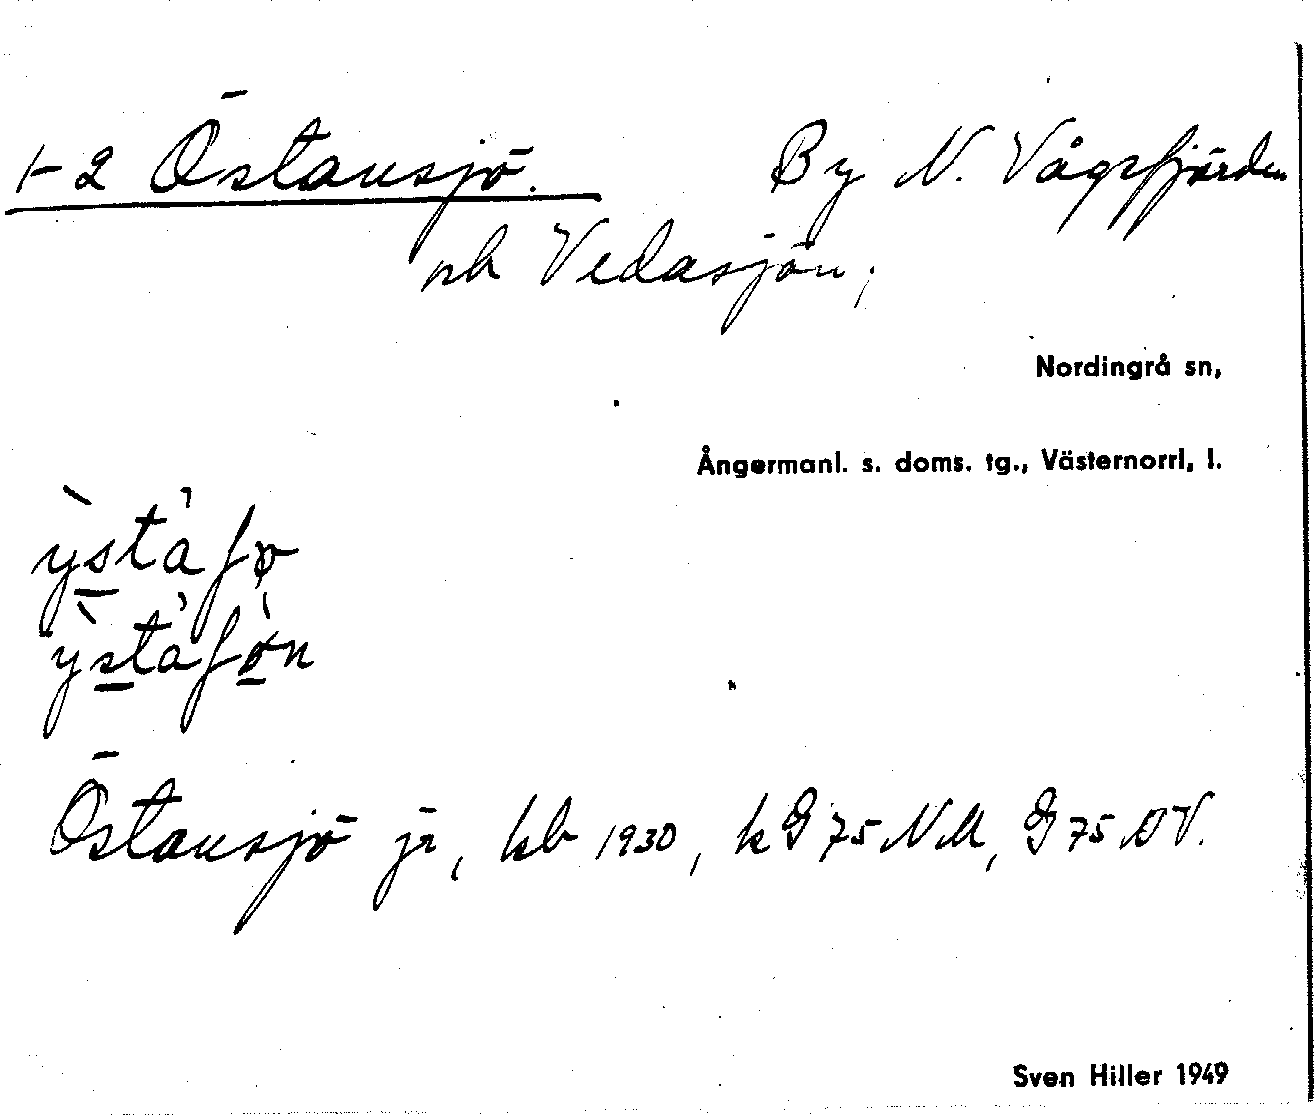 1-2 Östansjö. By N. Vågsfjärden
och Vedasjön;
Nordingrå sn,
Ångermanl. s. doms. tg., Västernorrl. l.
Östansjö jr, kb 1930, k G 75 NM, G 75 SV.
Sven Hiller 1949